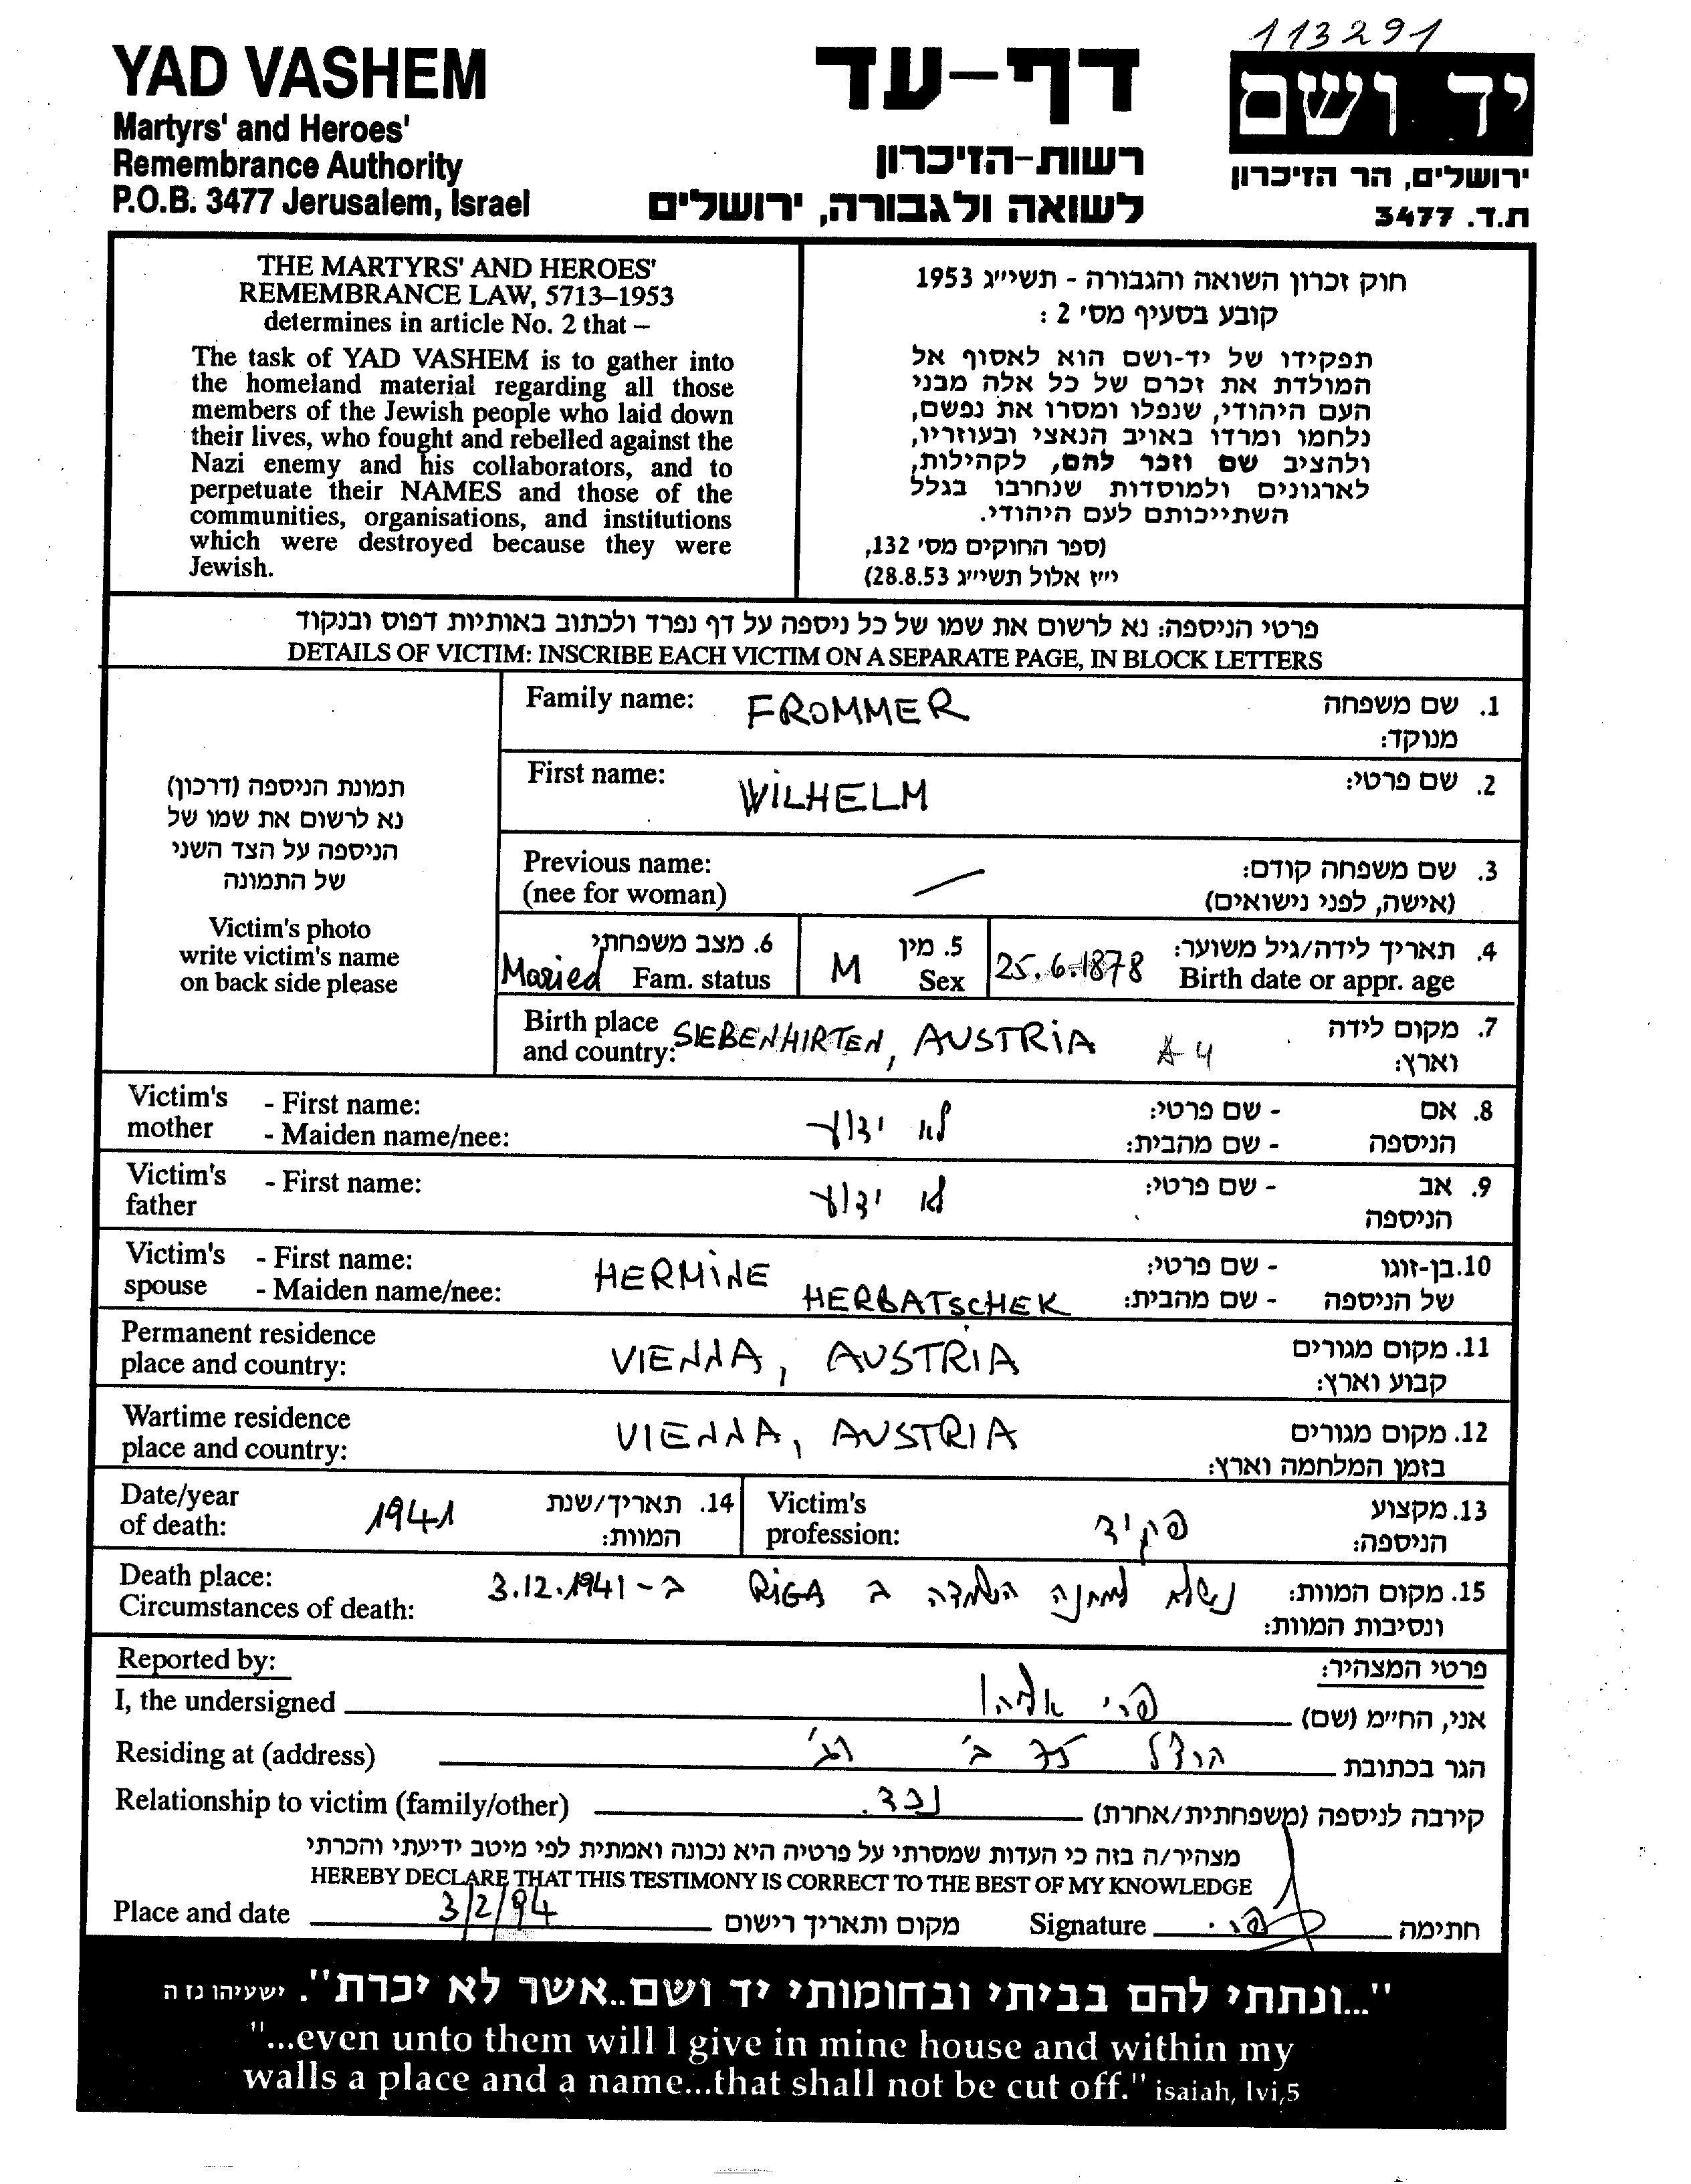 113291
YAD VASHEM
Martyrs' and Heroes'
Remembrance Authority
P.O.B. 3477 Jerusalem, Israel
דף-עד
רשות-הזיכרון
לשואה ולגבורה, ירושלים
יד ושם
ירושלים, הר הזיכרון
ת.ד. 3477
THE MARTYRS' AND HEROES'
REMEMBRANCE LAW, 5713–1953
determines in article No. 2 that –
The task of YAD VASHEM is to gather into
the homeland material regarding all those
members of the Jewish people who laid down
their lives, who fought and rebelled against the
Nazi enemy and his collaborators, and to
perpetuate their NAMES and those of the
communities, organisations, and institutions
which were destroyed because they were
Jewish.
חוק זכרון השואה והגבורה - תשי״ג 1953
קובע בסעיף מס׳ 2 :
תפקידו של יד-ושם הוא לאסוף אל
המולדת את זכרם של כל אלה מבני
העם היהודי, שנפלו ומסרו את נפשם,
נלחמו ומרדו באויב הנאצי ובעוזריו,
ולהציב שם וזכר להם, לקהילות,
לארגונים ולמוסדות שנחרבו בגלל
השתייכותם לעם היהודי.
(ספר החוקים מס׳ 132,
י״ז אלול תשי״ג 28.8.53)
פרטי הניספה: נא לרשום את שמו של כל ניספה על דף נפרד ולכתוב באותיות דפוס ובנקוד
DETAILS OF VICTIM: INSCRIBE EACH VICTIM ON A SEPARATE PAGE, IN BLOCK LETTERS
תמונת הניספה (דרכון)
נא לרשום את שמו של
הניספה על הצד השני
של התמונה
Victim's photo
write victim's name
on back side please
Family name: FROMMER 1. שם משפחה
מנוקד:
First name: WILHELM 2. שם פרטי:
Previous name: — 3. שם משפחה קודם:
(nee for woman) (אישה, לפני נישואים)
6. מצב משפחתי 5. מין 4. תאריך לידה/גיל משוער:
Maried Fam. status M Sex 25.6.1878 Birth date or appr. age
Birth place SIEBENHIRTEN, AUSTRIA A4 7. מקום לידה
and country: וארץ:
Victim's - First name: - שם פרטי: 8. אם
mother - Maiden name/nee: לא ידוע - שם מהבית: הניספה
Victim's - First name: לא ידוע - שם פרטי: 9. אב
father הניספה
Victim's - First name: HERMINE - שם פרטי: 10. בן-זוגו
spouse - Maiden name/nee: HERBATSCHEK - שם מהבית: של הניספה
Permanent residence VIENNA, AUSTRIA 11. מקום מגורים
place and country: קבוע וארץ:
Wartime residence VIENNA, AUSTRIA 12. מקום מגורים
place and country: בזמן המלחמה וארץ:
Date/year 1941 14. תאריך/שנת Victim's פקיד 13. מקצוע
of death: המוות: profession: הניספה:
Death place: 15. מקום המוות: נשלח למחנה השמדה ב RIGA ב-3.12.1941
Circumstances of death: ונסיבות המוות:
Reported by: פרטי המצהיר:
I, the undersigned פרי אליהו אני, החי״מ (שם)
Residing at (address) 75 ב׳ הגר בכתובת
Relationship to victim (family/other) נכד. קירבה לניספה (משפחתית/אחרת)
מצהיר/ה בזה כי העדות שמסרתי על פרטיה היא נכונה ואמתית לפי מיטב ידיעתי והכרתי
HEREBY DECLARE THAT THIS TESTIMONY IS CORRECT TO THE BEST OF MY KNOWLEDGE
Place and date 3/2/94 מקום ותאריך רישום Signature חתימה
"...ונתתי להם בביתי ובחומותי יד ושם..אשר לא יכרת". ישעיהו נז ה
"...even unto them will I give in mine house and within my
walls a place and a name...that shall not be cut off." isaiah, lvi,5